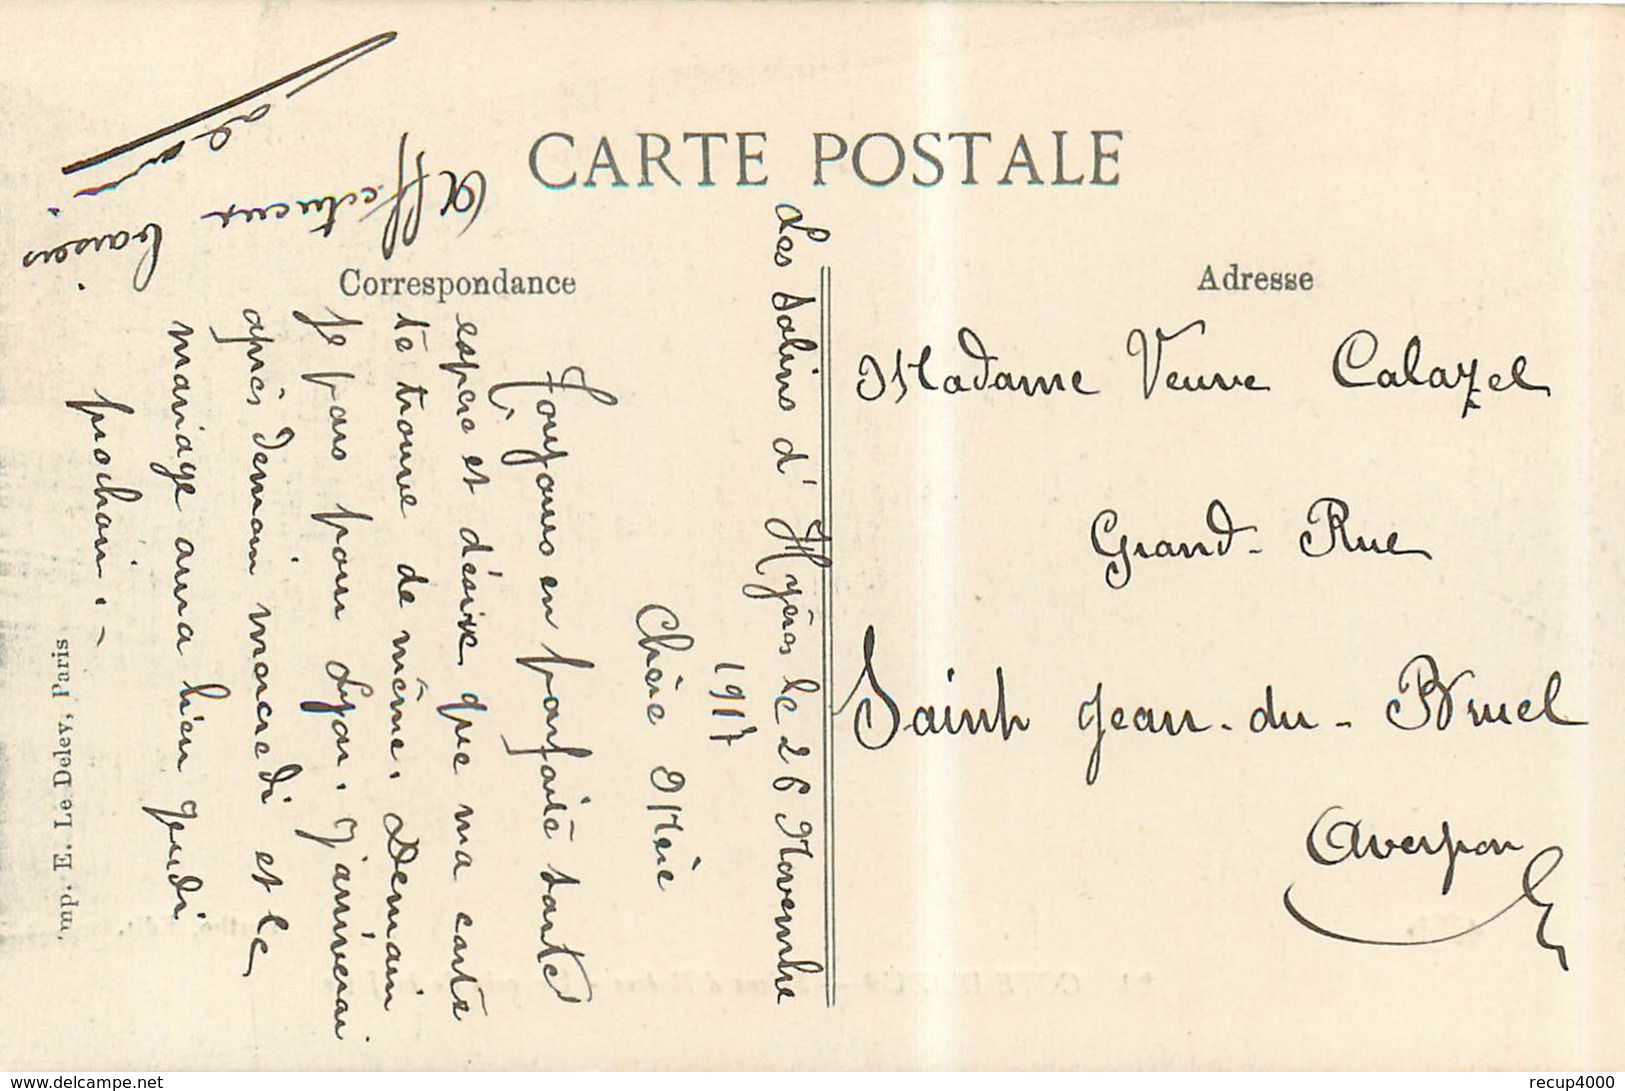 CARTE POSTALE
Correspondance
Adresse
Les Salins d'Hyères le 26 Novembre
1917
Chère Mère
Toujours en parfaite santé
espère et désire que ma carte
te trouve de même. Demain
je pars pour Lyon. J'arriverai
après demain mercredi et le
mariage aura lieu jeudi
prochain. -
Affectueux baisers.
Madame Veuve Calazel
Grand-Rue
Saint Jean-du-Bruel
Aveyron
Imp. E. Le Deley, Paris
www.delcampe.net
recup4000